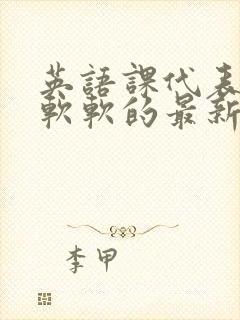 英語課代表
軟軟的最新
李甲